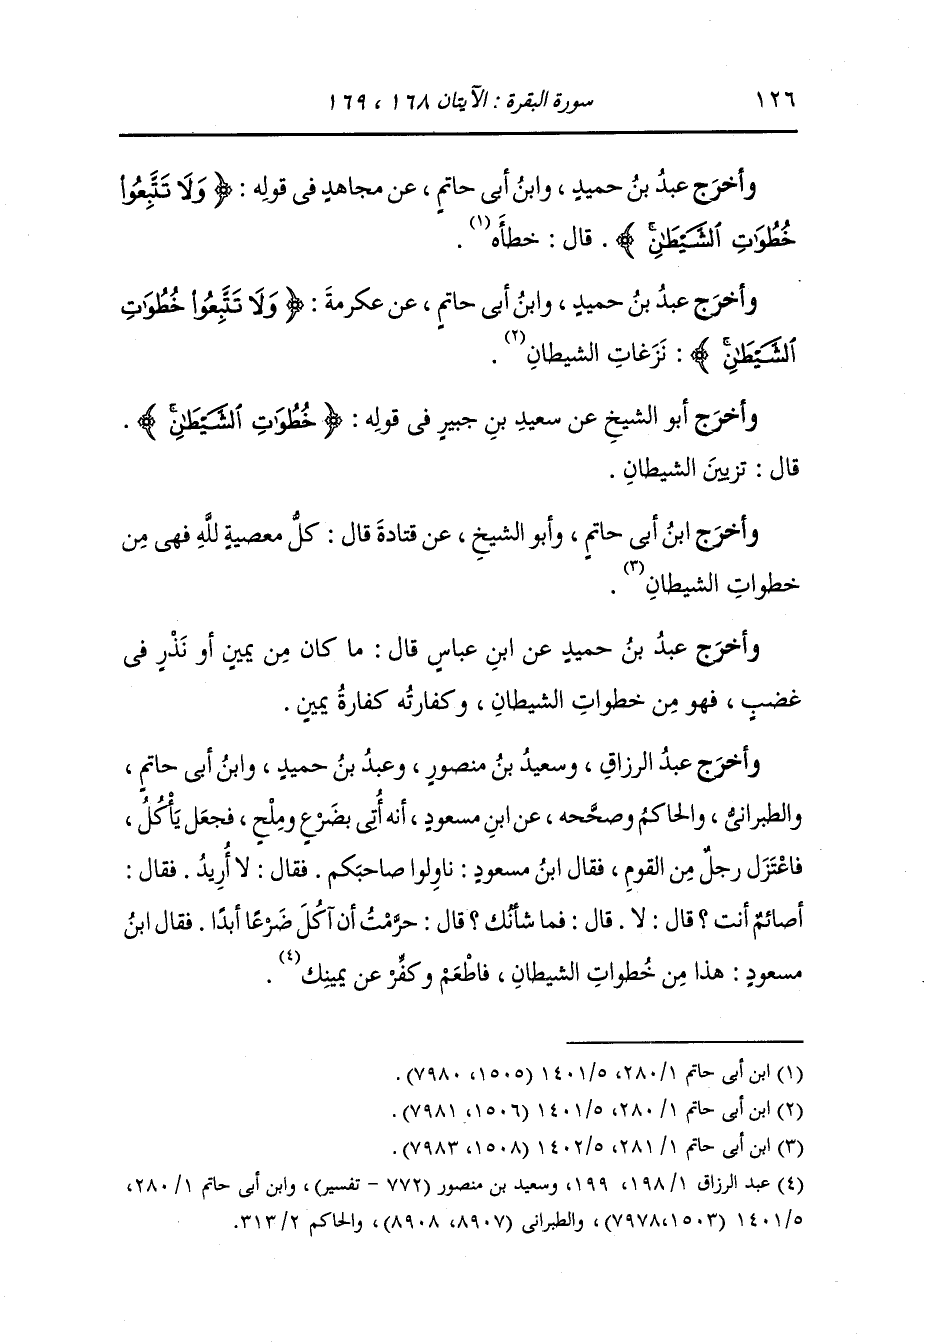 ١٢٦ سورة البقرة : الآيتان ١٦٨ ، ١٦٩
وأخرَج عبدُ بنُ حميدٍ ، وابنُ أبى حاتمٍ ، عن مجاهدٍ فى قولِه : ﴿ وَلَا تَتَّبِعُوا۟
خُطُوَٰتِ ٱلشَّيْطَـٰنِۚ ﴾ . قال : خطأَه(١) .
وأخرَج عبدُ بنُ حميدٍ ، وابنُ أبى حاتمٍ ، عن عكرمةَ : ﴿ وَلَا تَتَّبِعُوا۟ خُطُوَٰتِ
ٱلشَّيْطَـٰنِۚ ﴾ : نَزَغاتِ الشيطانِ(٢) .
وأخرَج أبو الشيخِ عن سعيدِ بنِ جبيرٍ فى قولِه : ﴿ خُطُوَٰتِ ٱلشَّيْطَـٰنِۚ ﴾ .
قال : تزيينَ الشيطانِ .
وأخرَج ابنُ أبى حاتمٍ ، وأبو الشيخِ ، عن قتادةَ قال : كلُّ معصيةٍ للَّهِ فهى مِن
خطواتِ الشيطانِ(٣) .
وأخرَج عبدُ بنُ حميدٍ عن ابنِ عباسٍ قال : ما كان مِن يمينٍ أو نَذْرٍ فى
غضبٍ ، فهو مِن خطواتِ الشيطانِ ، وكفارتُه كفارةُ يمينٍ .
وأخرَج عبدُ الرزاقِ ، وسعيدُ بنُ منصورٍ ، وعبدُ بنُ حميدٍ ، وابنُ أبى حاتمٍ ،
والطبرانىُّ ، والحاكمُ وصحَّحه ، عن ابنِ مسعودٍ ، أنه أُتِى بضَرْعٍ ومِلْحٍ ، فجعَل يَأْكُلُ ،
فاعْتَزَل رجلٌ مِن القومِ ، فقال ابنُ مسعودٍ : ناوِلوا صاحبَكم . فقال : لا أُرِيدُ . فقال :
أصائمٌ أنت ؟ قال : لا . قال : فما شأنُك ؟ قال : حرَّمْتُ أن آكُلَ ضَرْعًا أبدًا . فقال ابنُ
مسعودٍ : هذا مِن خُطواتِ الشيطانِ ، فاطْعَمْ وكفِّرْ عن يمينِك(٤) .
(١) ابن أبى حاتم ١/ ٢٨٠، ١٤٠١/٥ (١٥٠٥، ٧٩٨٠).
(٢) ابن أبى حاتم ١/ ٢٨٠، ١٤٠١/٥ (١٥٠٦، ٧٩٨١).
(٣) ابن أبى حاتم ١/ ٢٨١، ١٤٠٢/٥ (١٥٠٨، ٧٩٨٣).
(٤) عبد الرزاق ١/ ١٩٨، ١٩٩، وسعيد بن منصور (٧٧٢ - تفسير)، وابن أبى حاتم ١/ ٢٨٠،
١٤٠١/٥ (١٥٠٣،٧٩٧٨)، والطبرانى (٨٩٠٧، ٨٩٠٨)، والحاكم ٣١٣/٢.